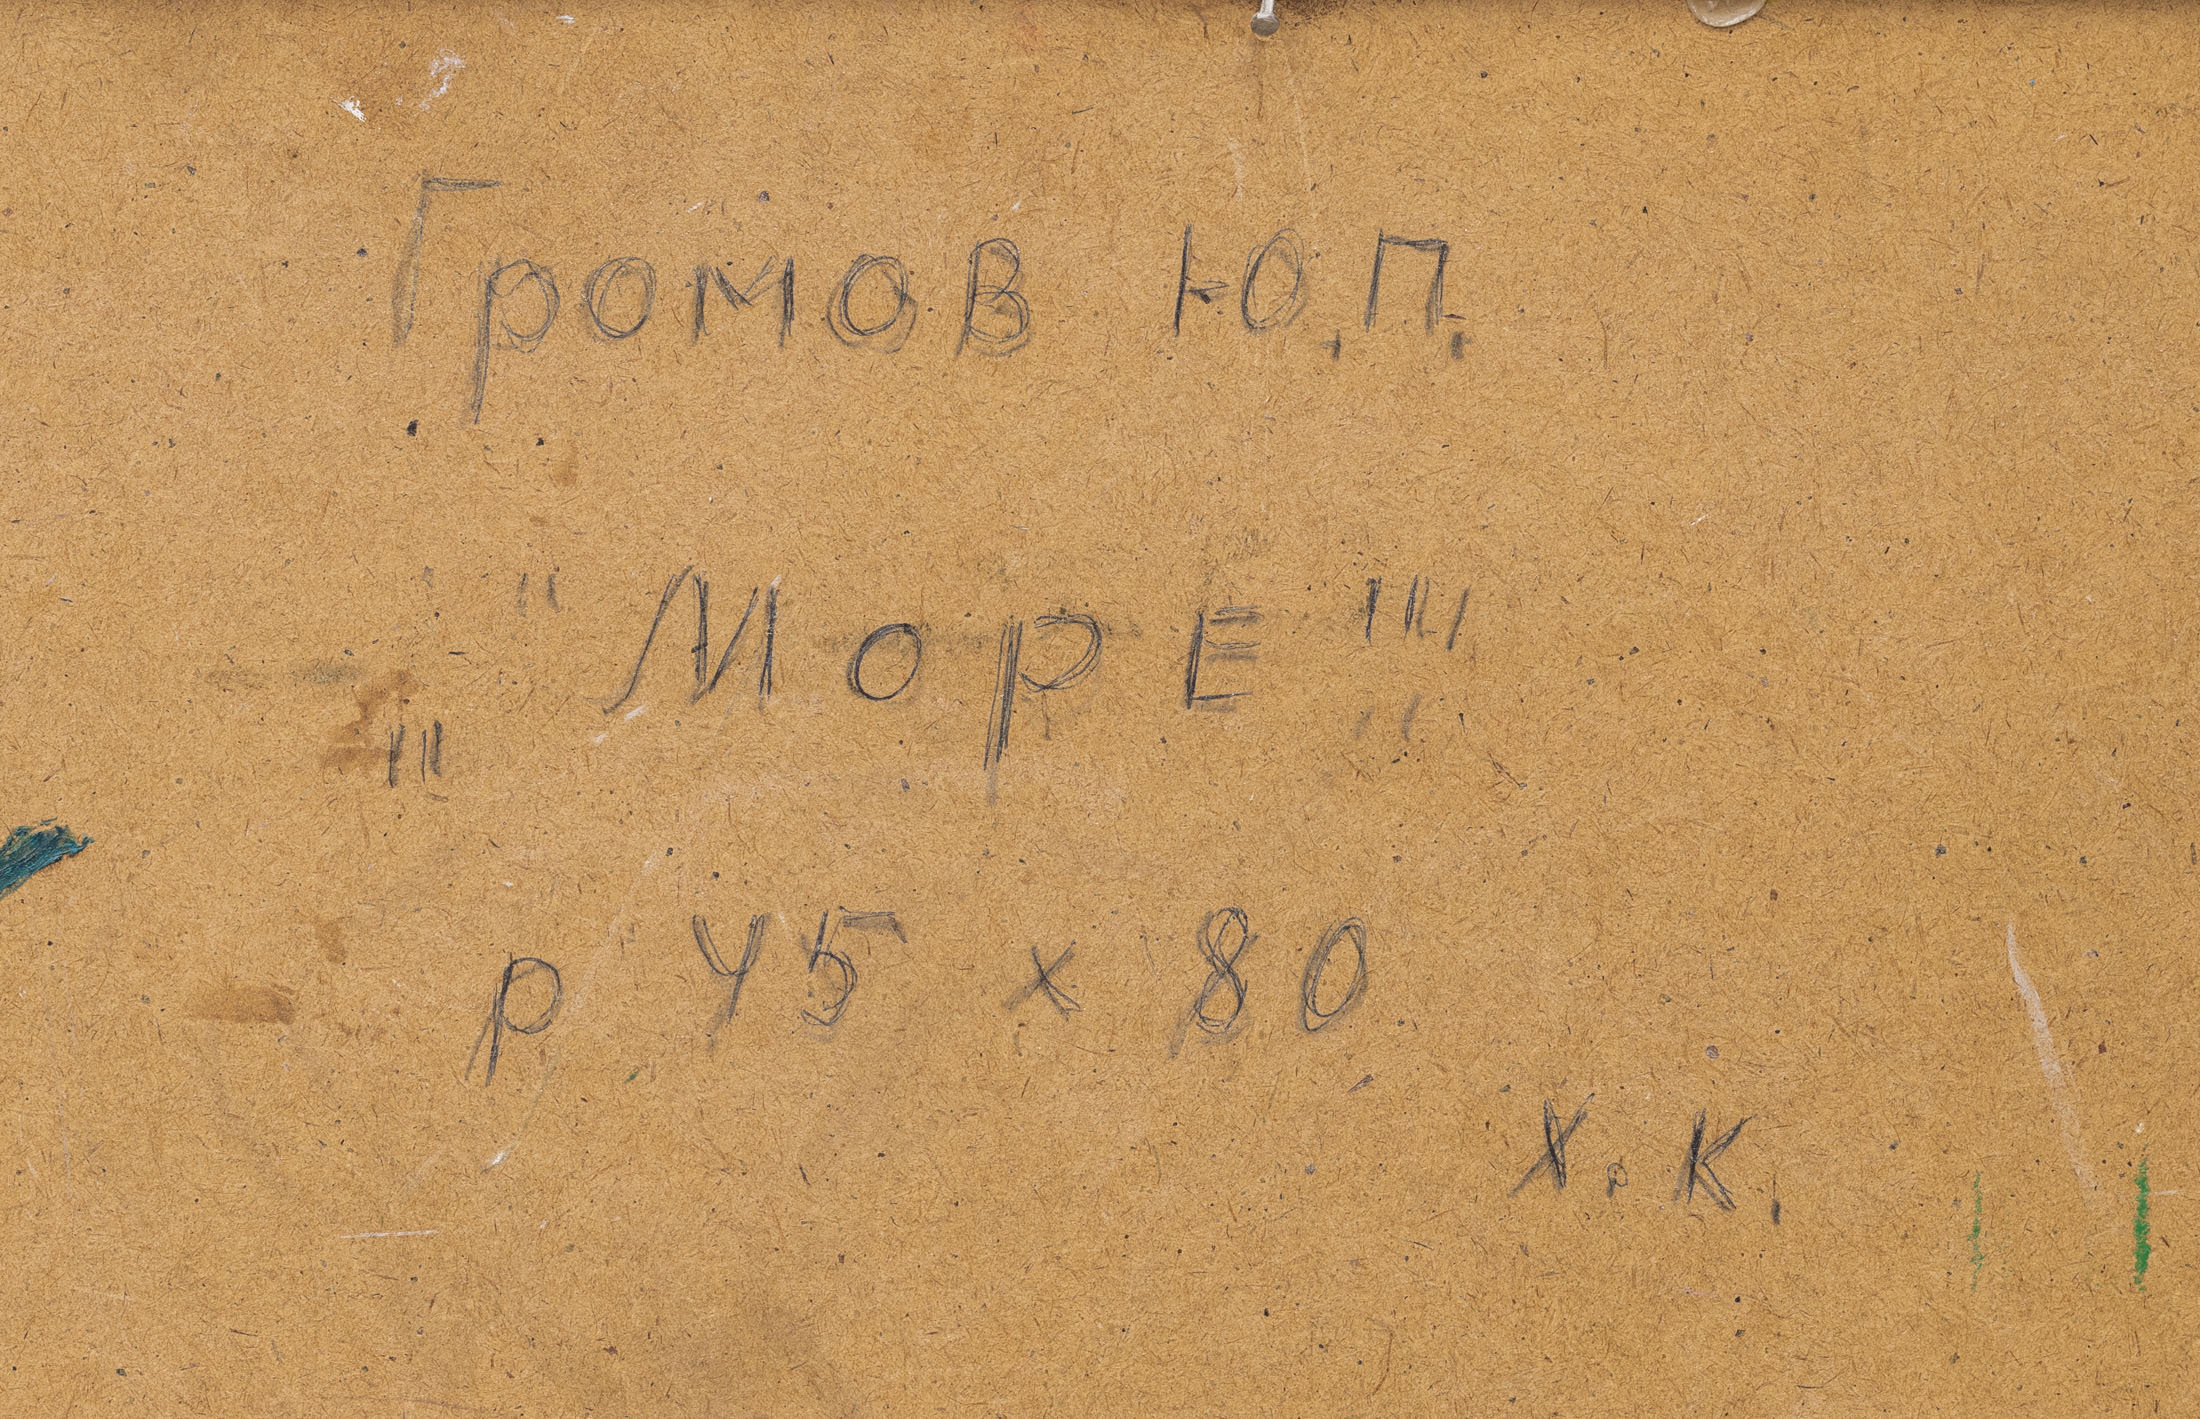 Громов Ю.П.
"Море"
р 45 х 80
Х.К.